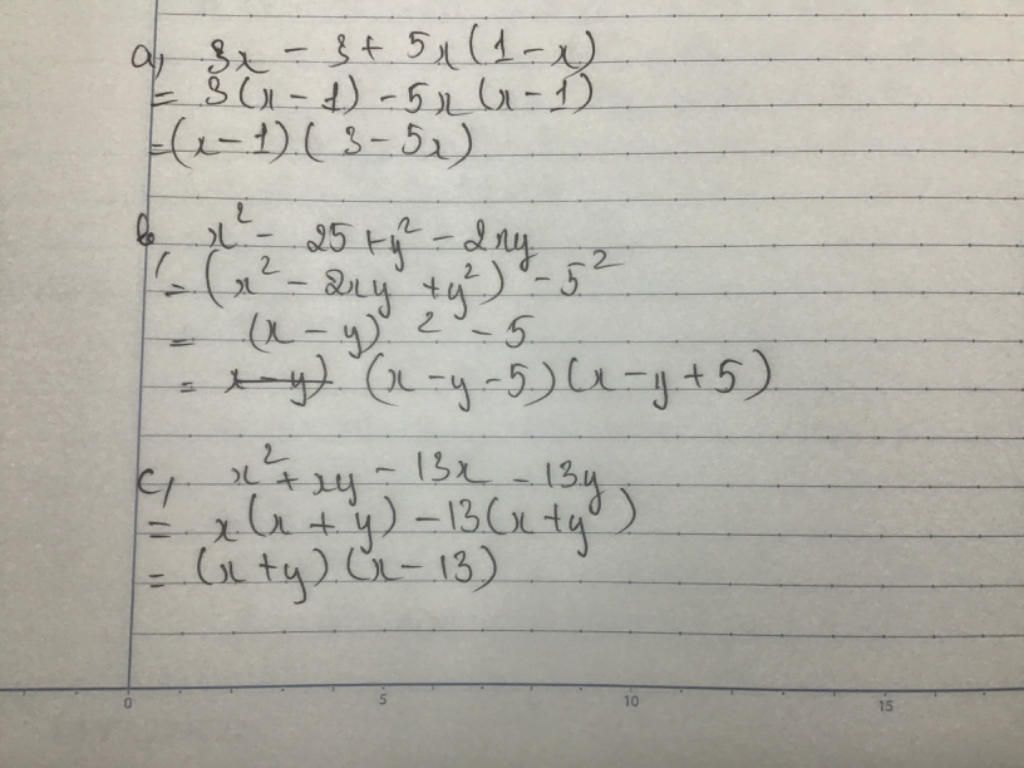 a, 3x - 3 + 5x(1 - x)
= 3(x - 1) - 5x (x - 1)
= (x - 1)( 3 - 5x)
b, x² - 25 + y² - 2xy
= (x² - 2xy + y²) - 5²
= (x - y)² - 5
= x - y) (x - y - 5)(x - y + 5)
c, x² + xy - 13x - 13y
= x(x + y) - 13(x + y)
= (x + y)(x - 13)
0 5 10 15